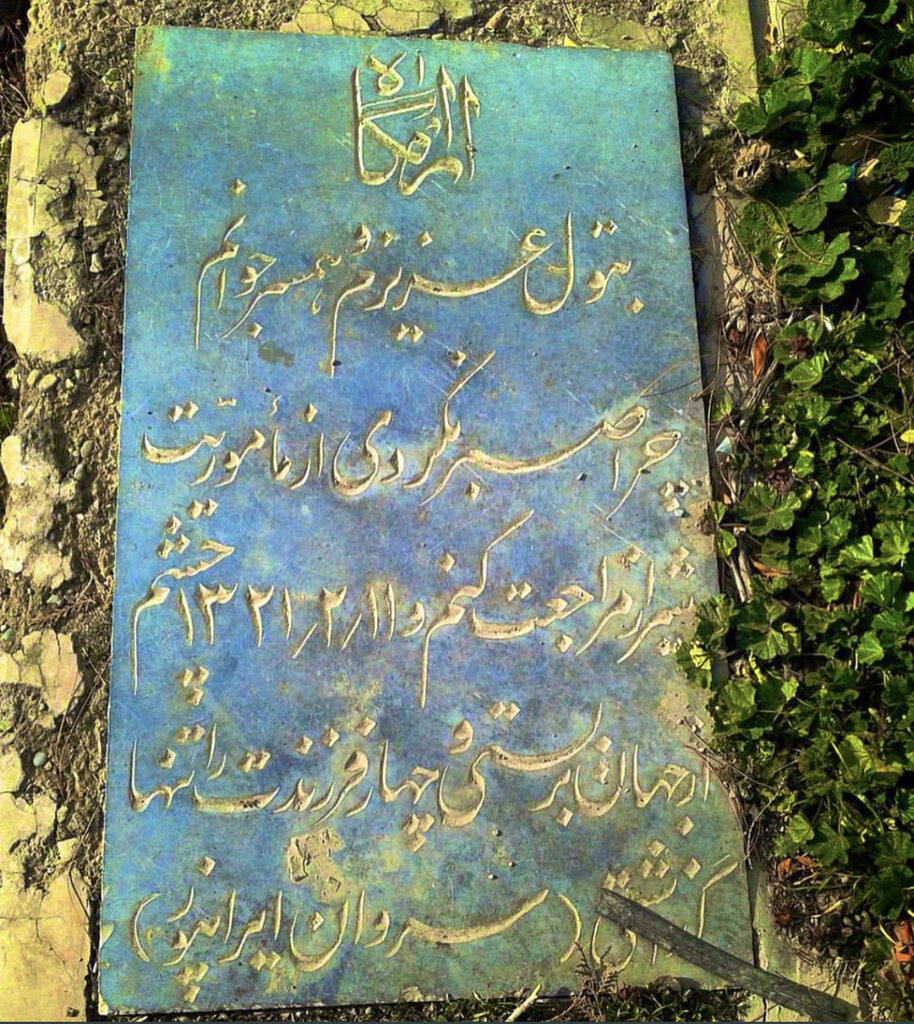 آرامگاه
بتول عزیزم و همسر جوانم
چرا صبر نکردی از مأموریّت
شیراز مراجعت کنم و ۱۳۲۱٫۲٫۱۱ چشم
از جهان بر بستی و چهار فرزندت را تنها
گذاشتی (سروان ایرانپور)